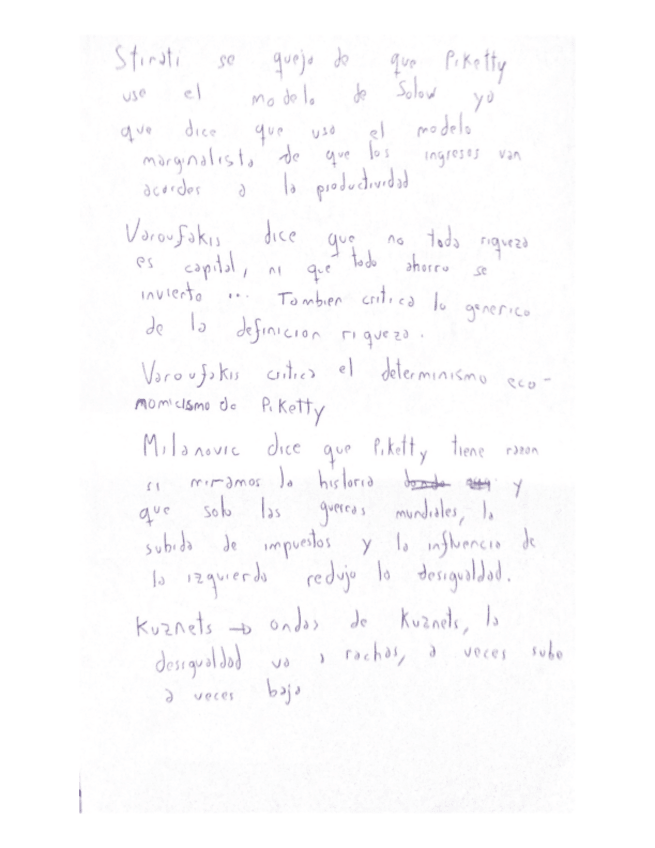 Stirati se queja de que Piketty
use el modelo de Solow ya
que dice que usa el modelo
marginalista de que los ingresos van
acordes a la productividad
Varoufakis dice que no toda riqueza
es capital, ni que todo ahorro se
invierta ... Tambien critica lo generico
de la definicion riqueza.
Varoufakis critica el determinismo eco-
nomicismo de Piketty
Milanovic dice que Piketty tiene razon
si miramos la historia y
que solo las guerras mundiales, la
subida de impuestos y la influencia de
la izquierda redujo la desigualdad.
Kuznets → ondas de Kuznets, la
desigualdad va a rachas, a veces sube
a veces baja